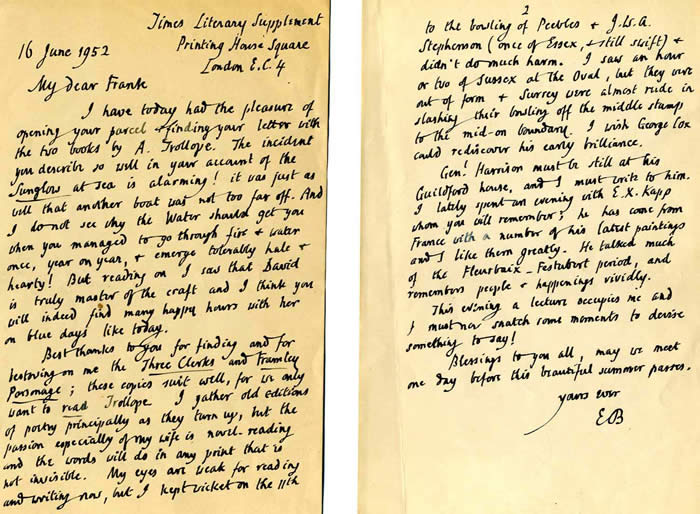 Times Literary Supplement
16 June 1952
Printing House Square
London E.C.4
My dear Frank
I have today had the pleasure of
opening your parcel & finding your letter with
the two books by A. Trollope. The incident
you describe so well in your account of the
Sunglow at sea is alarming! it was just as
well that another boat was not too far off. And
I do not see why the Water should get you
when you managed to go through fire & water
once, year on year, & emerge tolerably hale &
hearty! But reading on I saw that David
is truly master of the craft and I think you
will indeed find many happy hours with her
on blue days like today.
Best thanks to you for finding and for
bestowing on me the Three Clerks and Framley
Parsonage; these copies suit well, for we only
want to read Trollope. I gather old editions
of poetry principally as they turn up, but the
passion especially of my wife is novel-reading
and the words will do in any print that is
not invisible. My eyes are weak for reading
and writing now, but I kept wicket on the 11th
2
to the bowling of Peebles & J.W.A.
Stephenson (once of Essex, & still swift) &
didn't do much harm. I saw an hour
or two of Sussex at the Oval, but they were
out of form & Surrey were almost rude in
slashing their bowling off the middle stump
to the mid-on boundary. I wish George Cox
could rediscover his early brilliance.
Genl Harrison must be still at his
Guildford house, and I must write to him.
I lately spent an evening with E.X. Kapp
whom you will remember; he has come from
France with a number of his latest paintings
and I like them greatly. He talked much
of the Fleurbaix-Festubert period, and
remembers people & happenings vividly.
This evening a lecture occupies me and
I must now snatch some moments to devise
something to say!
Blessings to you all, may we meet
one day before this beautiful summer passes.
yours ever
EB